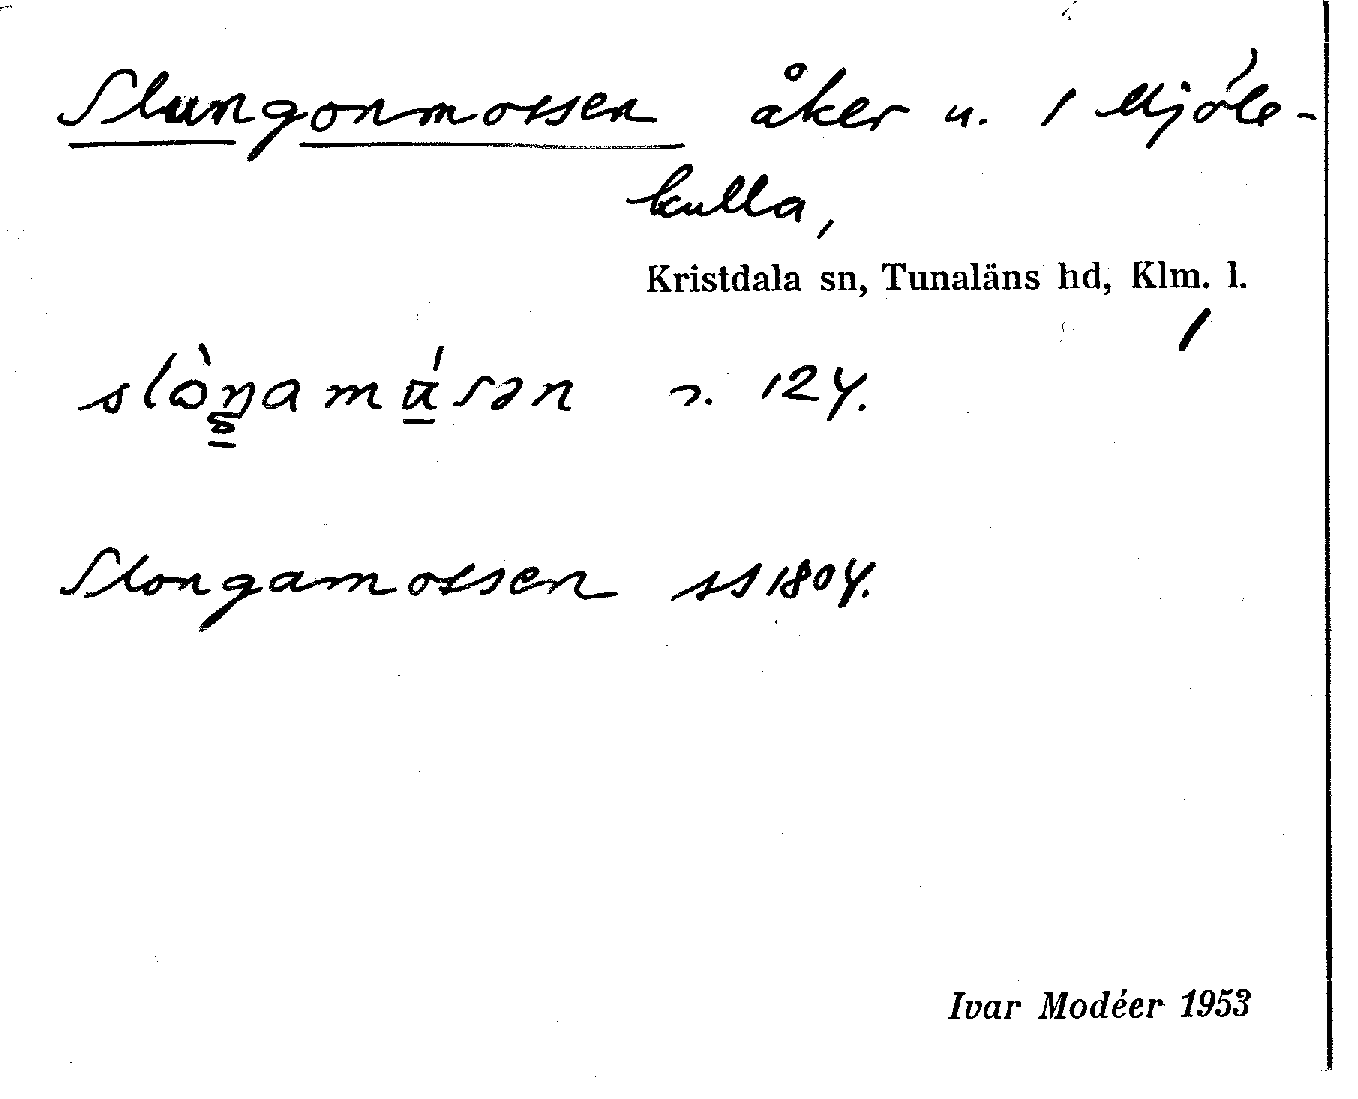 Slungonmossen åker u. 1 Mjöle-
kulla,
Kristdala sn, Tunaläns hd, Klm. l.
slòŋamúsən 124.
Slongamossen ss 1804.
Ivar Modéer 1953